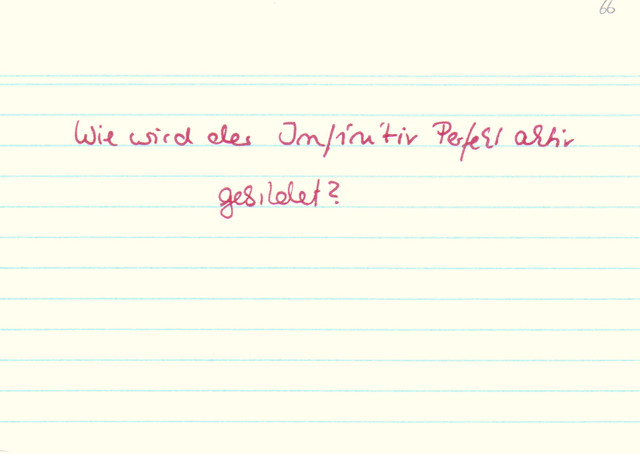 66
Wie wird der Infinitiv Perfekt aktiv
gebildet?